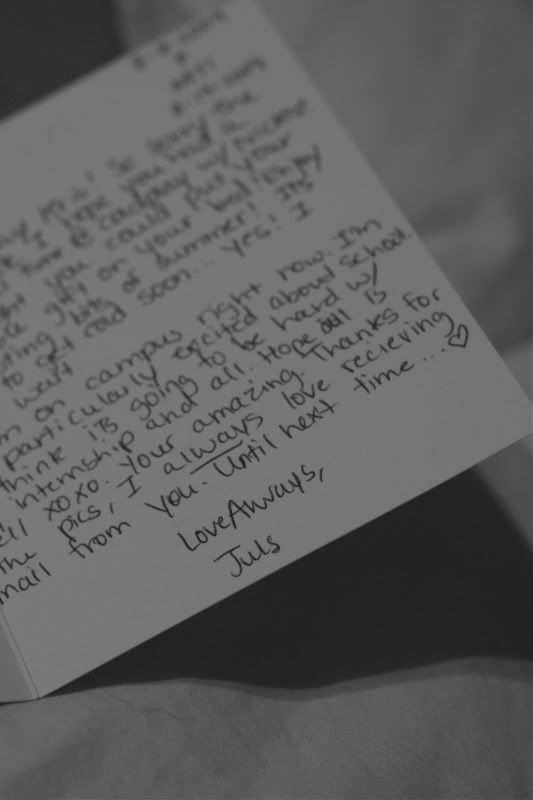 So sorry the
hope you had a
time @ couldplay w/
you could put your
gift on your bed! Enjoy
bits of summer! Its
to get cold soon... yes! I
wait.
on campus right now. I'm
particularly excited about school.
think its going to be hard w/
internship and all. Hope all is
xoxo. Your amazing. Thanks for
the pics, I always love recieving
mail from you. Until next time.... ♡
Love Always,
Juls